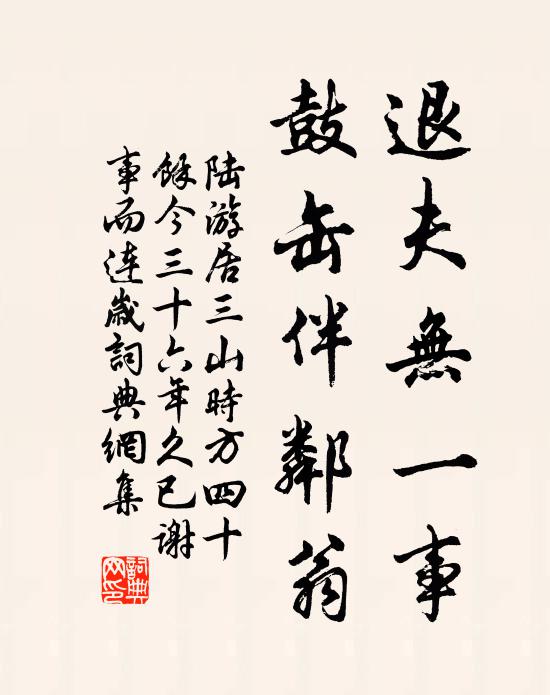 退夫無一事
鼓缶伴鄰翁
陆游居三山時方四十
餘今三十六年久已謝
事而連歲詞典網集
詞典网印